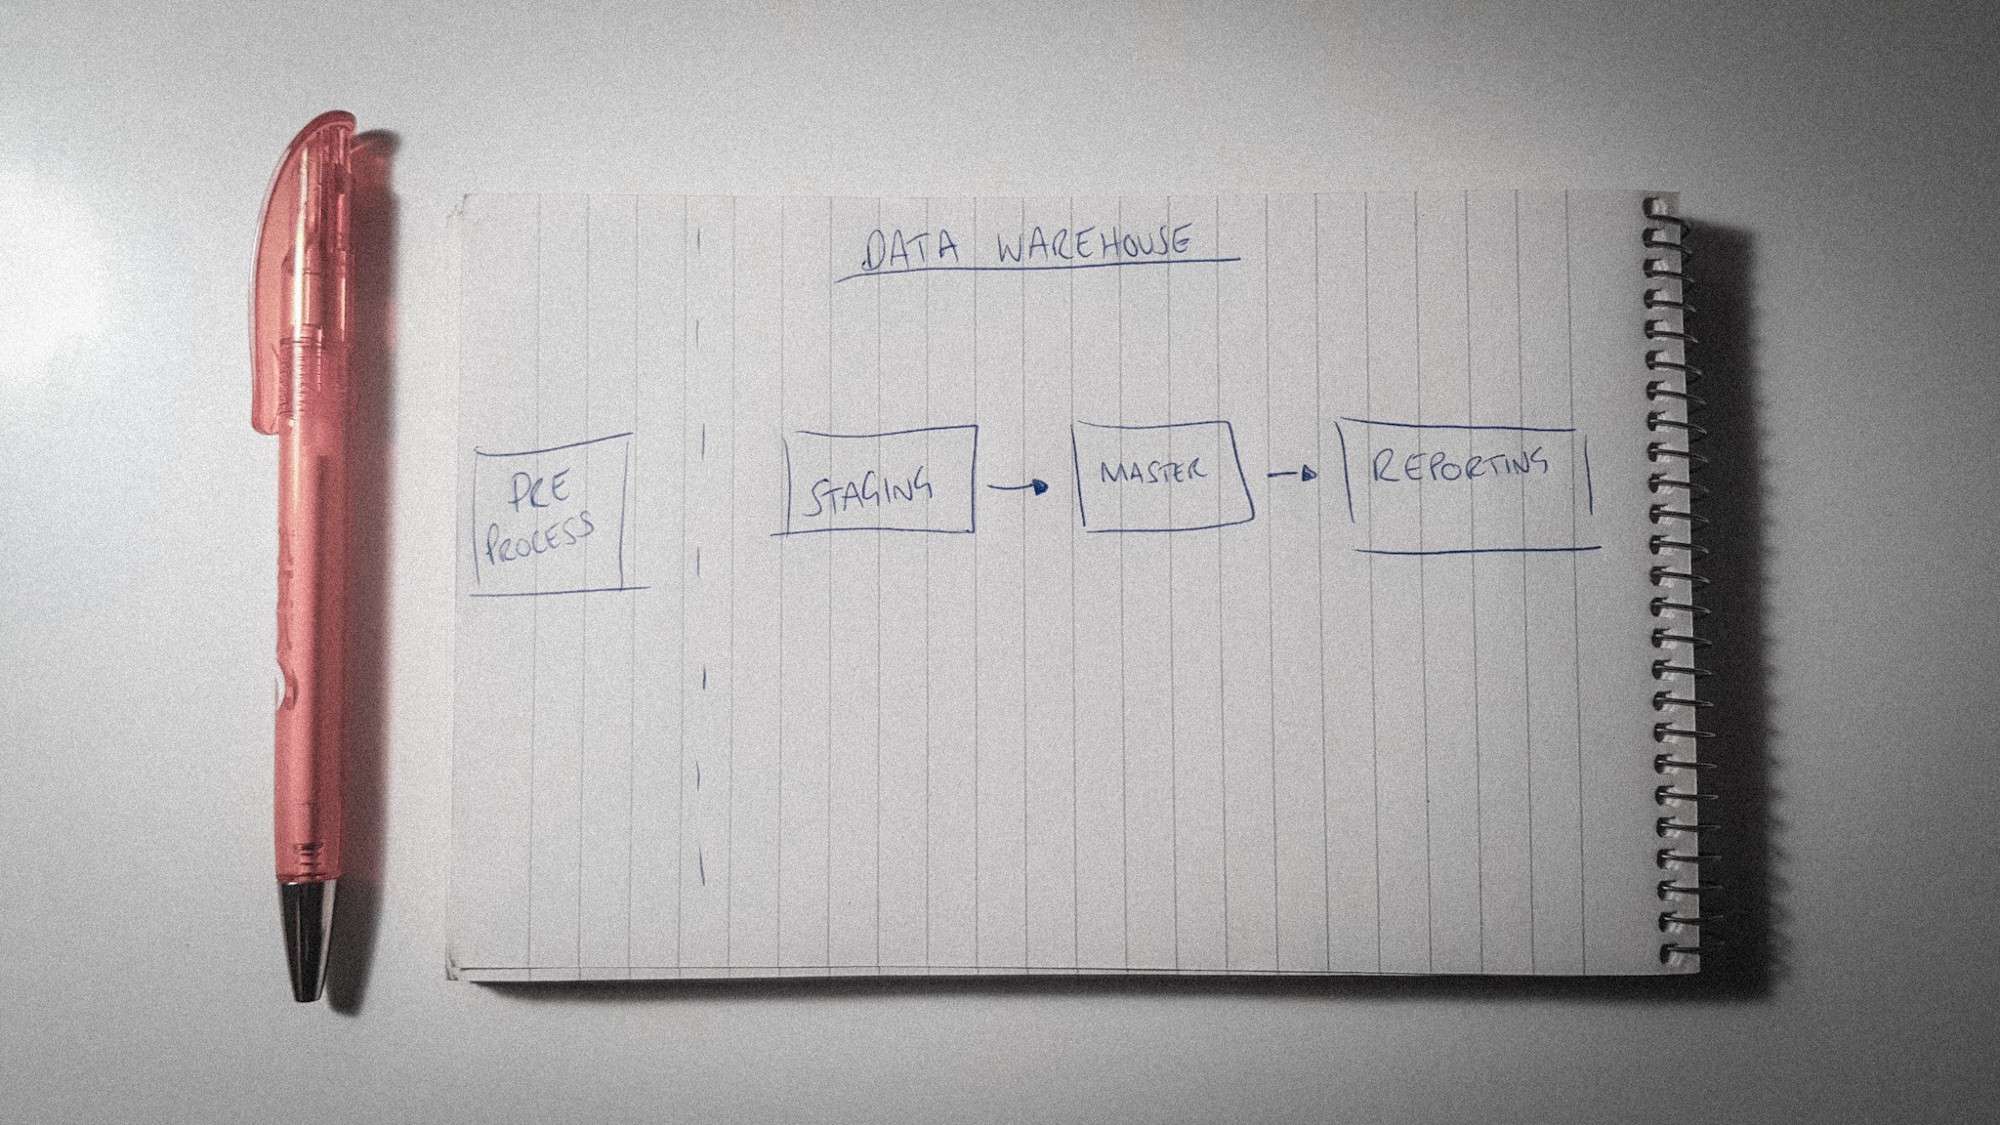 DATA WAREHOUSE
PRE
PROCESS
STAGING
MASTER
REPORTING